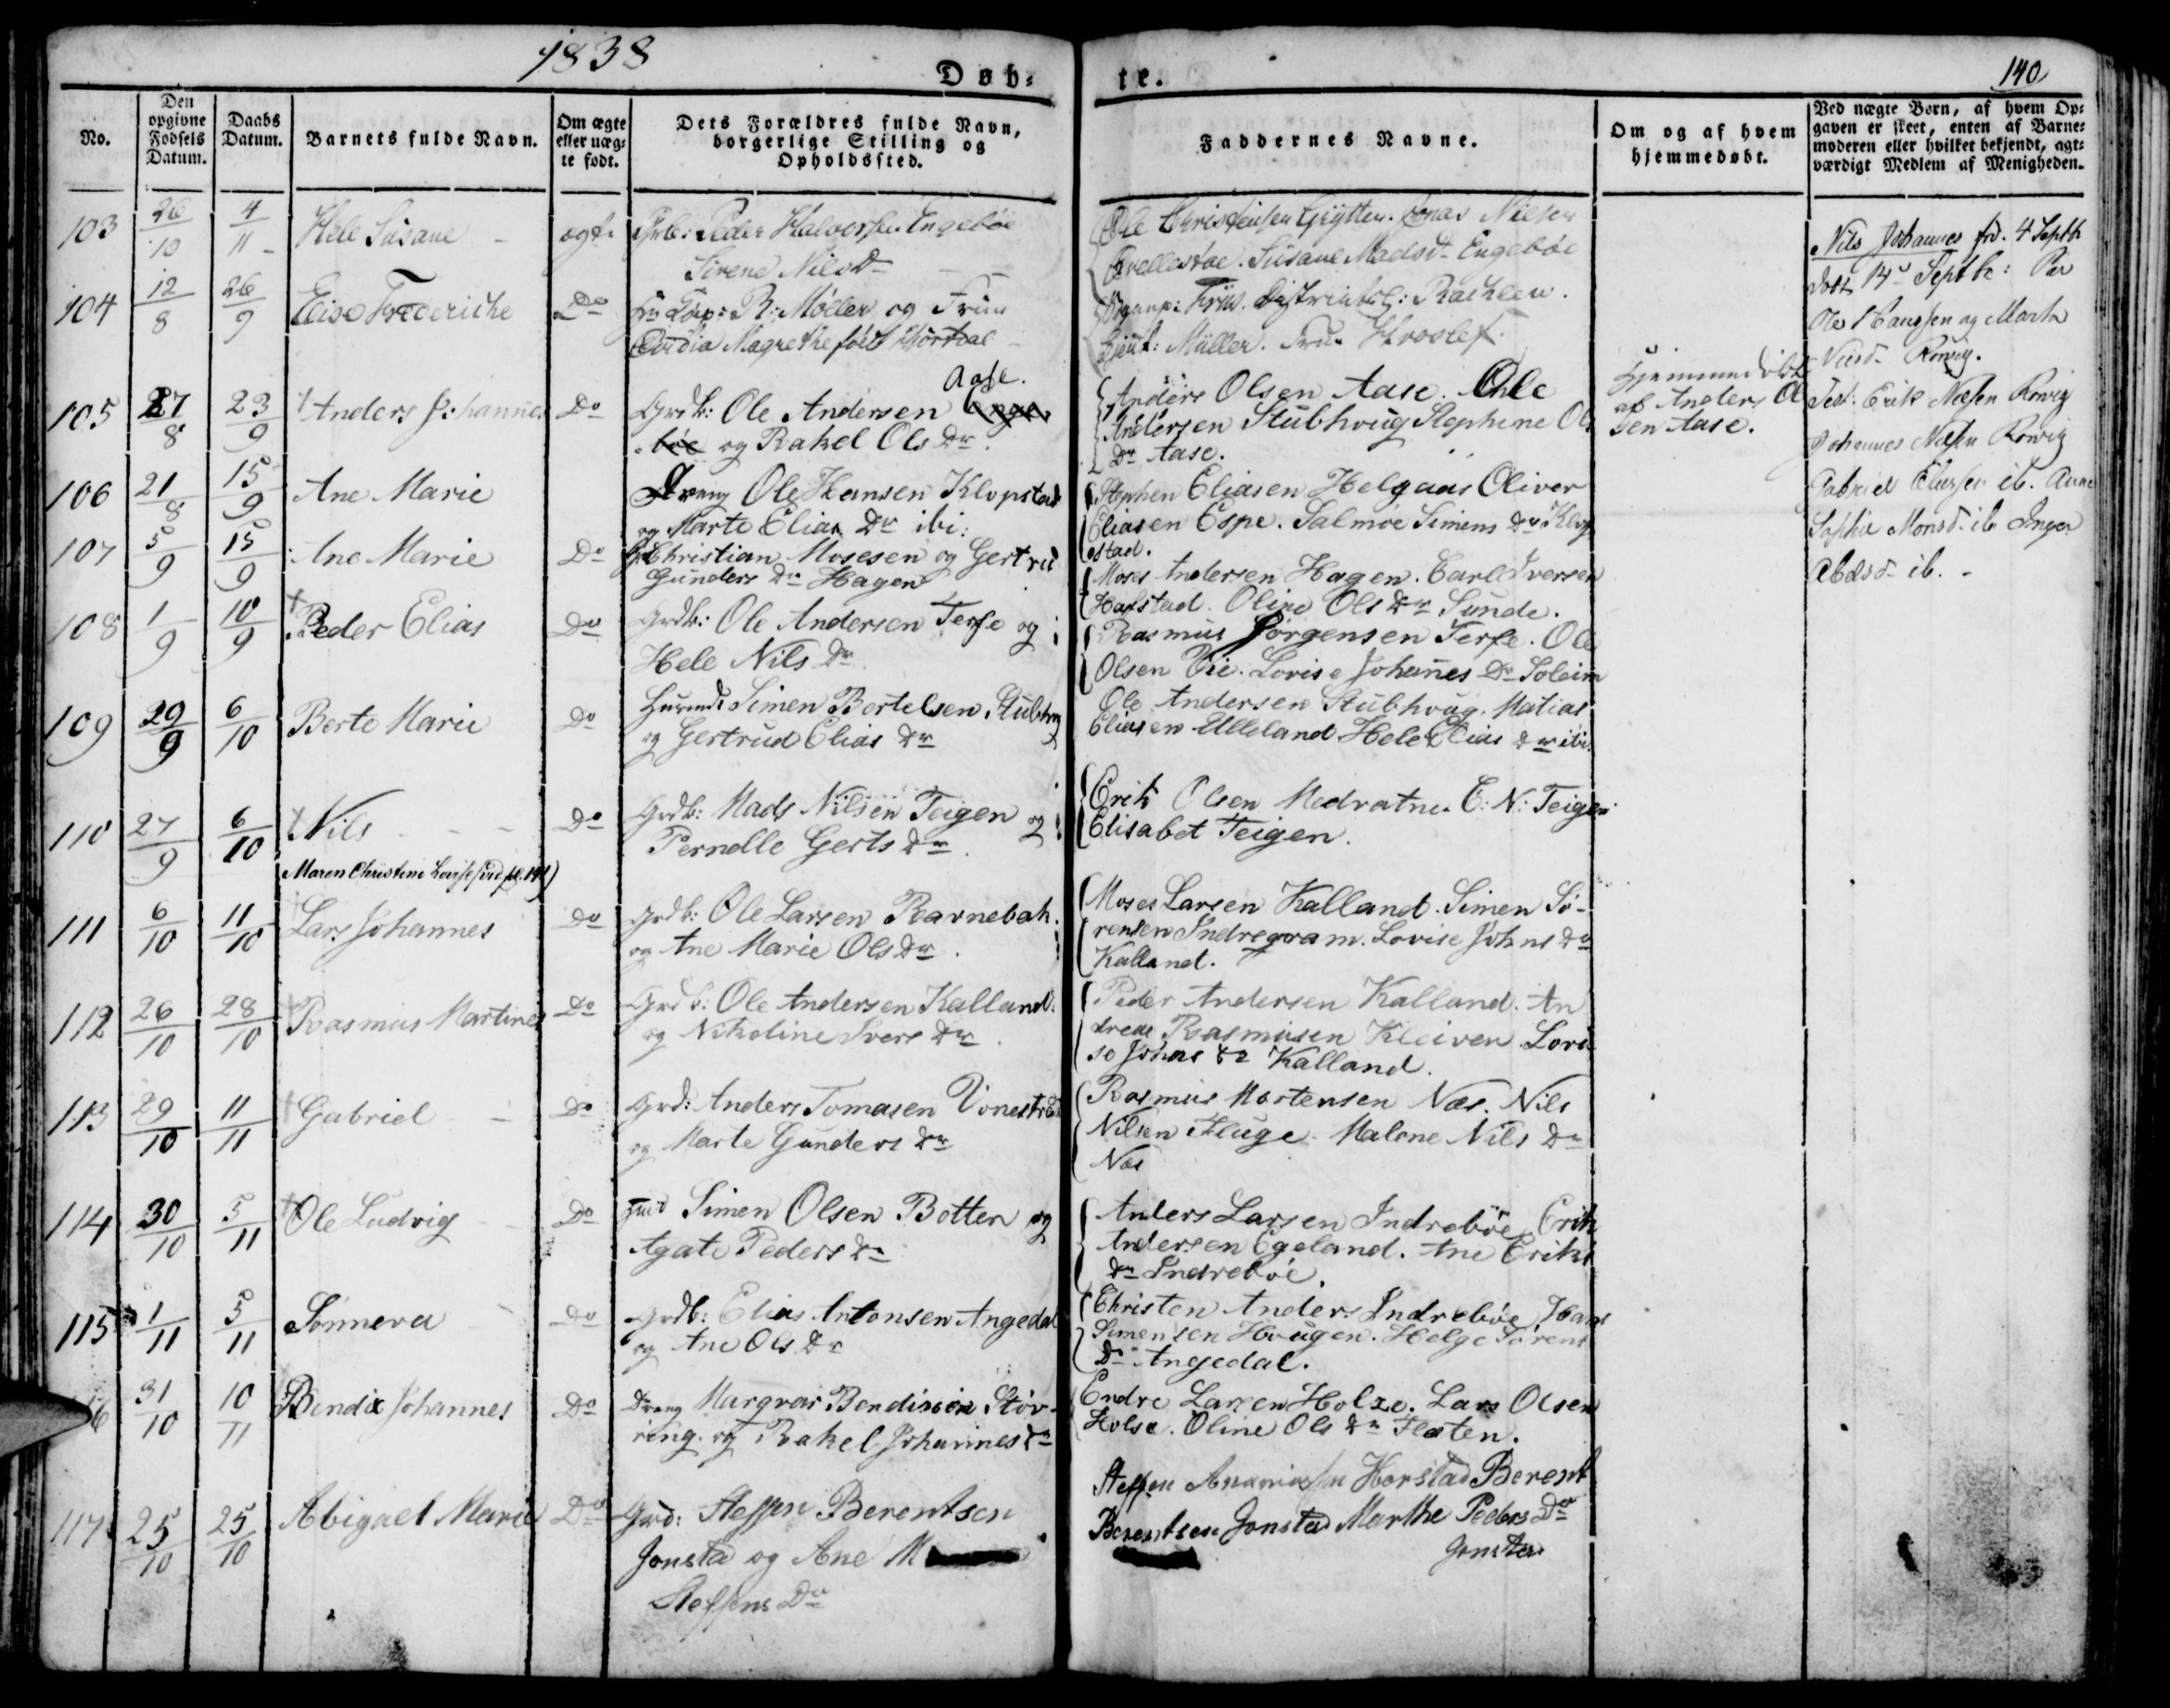 1838
Døb-
te.
140
No.
Den opgivne Fødsels Datum.
Daabs Datum.
Barnets fulde Navn.
Om ægte eller uæg-te født.
Dets Forældres fulde Navn, borgerlige Stilling og Opholdssted.
Faddernes Navne.
Om og af hvem hjemmedøbt.
Ved uægte Børn, af hvem Op-gaven er skeet, enten af Barne-moderen eller hvilket bekjendt, agt-værdigt Medlem af Menigheden.
103 26/10 4/11 Hele Susane ægte Peder Halvorsen Engebøe
Sirene Nils Dr
Ole Christensen Grytten. Jonas Nielsen
Susane Mads Dr Engebøe
104 12/8 26/9 Elise Frederiche Do R: Møller og Frue
Magrethe født
Friis. Müller. Frue
105 27/8 23/9 Anders Johannes Do Grdb: Ole Andersen Aase.
og Rakel Ols Dr.
Anders Olsen Aase. Ole
Andersen Stubhoug Stephine Ols
Dr Aase.
Hjemmedøbt
af Anders Ol
sen Aase.
106 21/8 15/9 Ane Marie Dreng Ole Hansen Klopstad
og Marte Elias Dr ibi:
Stephen Eliasen Helgaas Oliver
Eliasen Espe. Salmoe Simens Dr Klop
stad.
107 5/9 15/9 Ane Marie Do Christian Mosesen og Gertrud
Gunders Dr Hagen
Moses Andersen Hagen. Carl Iversen
Hafstad. Oline Ols Dr Sunde.
108 1/9 10/9 Peder Elias Do Grdb: Ole Andersen Terfe og
Hele Nils Dr
Rasmus Jørgensen Terfe. Ole
Olsen Vie. Lovise Johannes Dr Soleim
109 29/9 6/10 Berte Marie Do Huusmd Simen Bertelsen Stubhoug
og Gertrud Elias Dr
Ole Andersen Stubhoug. Matias
Eliasen Ulleland Hele Elias Dr ibi.
110 27/9 6/10 Nils Do Grdb: Mads Nilsen Teigen og
Pernelle Gerts Dr.
Erik Olsen Medvatne. E: N: Teigen
Elisabet Teigen.
Maren Christine Lovise (vid pg. 141)
111 6/10 11/10 Lars Johannes Do Grdb: Ole Larsen Ravnebak.
og Ane Marie Ols Dr.
Moses Larsen Kalland. Simen Sø-
rensen Indregram. Lovise Johns Dr
Kalland.
112 26/10 28/10 Rasmus Martines Do Grdb: Ole Andersen Kalland.
og Nikoline Ivers Dr.
Peder Andersen Kalland. An
dreas Rasmusen Kleiven Lovi
se Johns Dr Kalland.
113 29/10 11/11 Gabriel Do Grd: Anders Tomasen Vonestrand
og Marte Gunders Dr
Rasmus Mortensen Næs. Nils
Nilsen Fluge. Malene Nils Dr
Næs
114 30/10 5/11 Ole Ludvig Do Simen Olsen Botten og
Agate Peders Dr
Anders Larsen Indrebøe Erik
Andersen Egeland. Ane Eriks
Dr Indrebøe.
115 1/11 5/11 Sønneva Do Grdb: Elias Antonsen Angedal
og Ane Ols Dr
Christen Anders Indrebøe Hans
Simensen Hougen. Helge Sørens
Dr Angedal.
6 31/10 10/11 Bendix Johannes Do Dreng Margvar Bendixen Støv-
ring. og Rakel Johannes Dr
Endre Larsen Holze. Lars Olsen
Holse. Oline Ols Dr Flaten.
117 25/10 25/10 Abigael Marie Do Grd: Steffen Berentsen
Jonstad og Ane M
Steffens Dr
Steffen Horstad Berent
Berentsen Jonstad Marthe Peders Dr
Jonstad
Nils Johannes fød. 4 Septb
døbt 14 Septb: Par
Ole Hanssen og Marte
Test. Erik
Johannes
Gabriel ib. Anne
Sophie Monsd. ib Inger
ib.